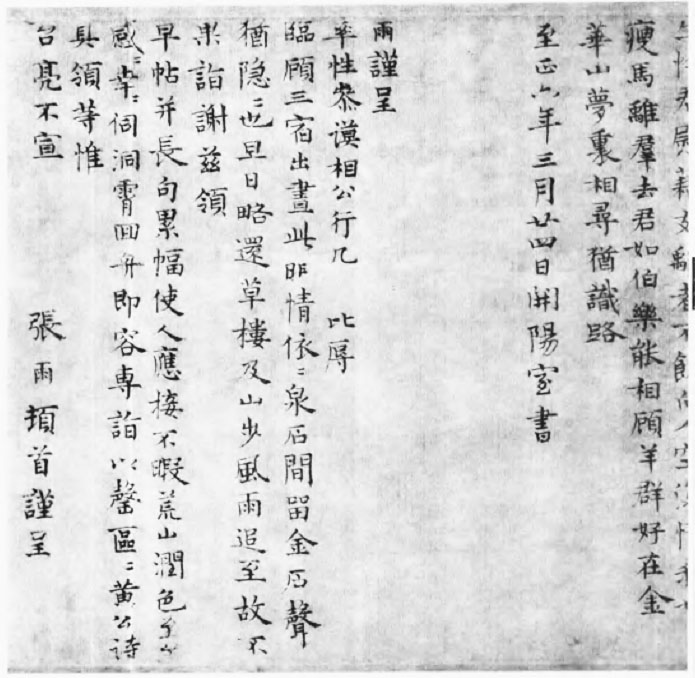 瘦馬離羣去君如伯樂能相顧羊群好在金
華山夢裏相尋猶識路
至正六年三月廿四日開陽室書
雨謹呈
率性叅謨相公行几 比辱
臨顧三宿出晝此昨情依〻泉石間留金石聲
猶隱〻也旦日略還草樓及山步風雨追至故不
果詣謝茲領
早帖并長句累幅使人應接不暇荒山潤色多〻
感〻幸〻伺洞霄回舟即容專詣以罄區〻黃公詩
具領等惟
台亮不宣
張雨頓首謹呈